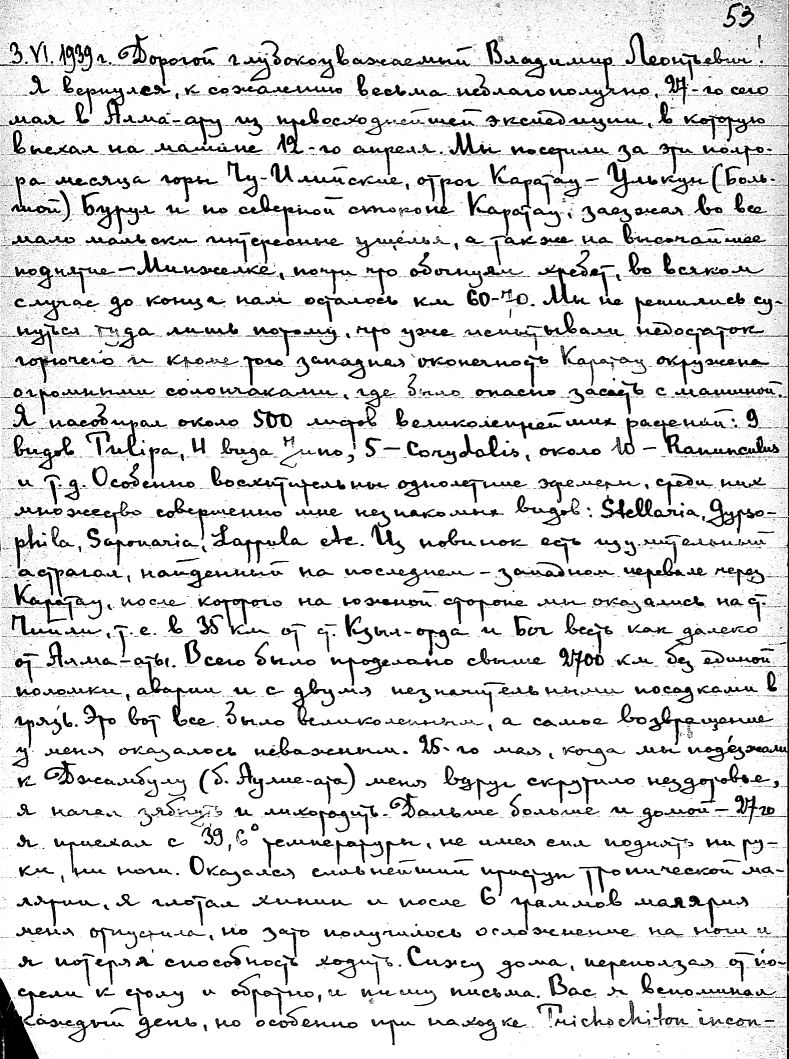 53
3.VI.1939 г. Дорогой глубокоуважаемый Владимир Леонтьевич!
Я вернулся, к сожалению весьма неблагополучно, 27-го сего
мая в Алма-ату из превосходнейшей экспедиции, в которую
выехал на машине 12-го апреля. Мы посетили за эти полто-
ра месяца горы Чу-Илийские, отрог Каратау – Улькун (Боль-
шой) Бурул и по северной стороне Каратау, заезжая во все
мало мальски интересные ущелья, а также на высочайшее
поднятие – Минжелке, почти что обогнули хребет, во всяком
случае до конца нам осталось км 60-70. Мы не решились су-
нуться туда лишь потому, что уже испытывали недостаток
горючего и кроме того западная оконечность Каратау окружена
огромными солончаками, где было опасно засесть с машиной.
Я насобирал около 500 листов великолепнейших растений: 9
видов Tulipa, 4 вида Juno, 5 – Corydalis, около 10 – Ranunculus
и т.д. Особенно восхитительны однолетние эфемеры, среди них
множество совершенно мне незнакомых видов: Stellaria, Gypso-
phila, Saponaria, Lappula etc. Из новинок есть изумительный
астрагал, найденный на последнем – западном перевале через
Каратау, после которого на южной стороне мы оказались на ст.
Чиили, т.е. в 35 км от ст. Кзыл-орда и Бог весть как далеко
от Алма-аты. Всего было проделано свыше 2700 км без единой
поломки, аварии и с двумя незначительными посадками в
грязь. Это вот все было великолепным, а самое возвращение
у меня оказалось неважным. 25-го мая, когда мы подъезжали
к Джамбулу (б. Аулие-ата) меня вдруг скрутило нездоровье,
я начал зябнуть и лихорадить. Дальше больше и домой – 27го
я приехал с 39,6° температуры, не имея сил поднять ни ру-
ки, ни ноги. Оказался сильнейший приступ тропической ма-
лярии, я глотал хинин и после 6 граммов малярия
меня отпустила, но зато получилось осложнение на ноги и
я потерял способность ходить. Сижу дома, переползая от по-
стели к столу и обратно, и пишу письма. Вас я вспоминал
каждый день, но особенно при находке Trichochiton incon-